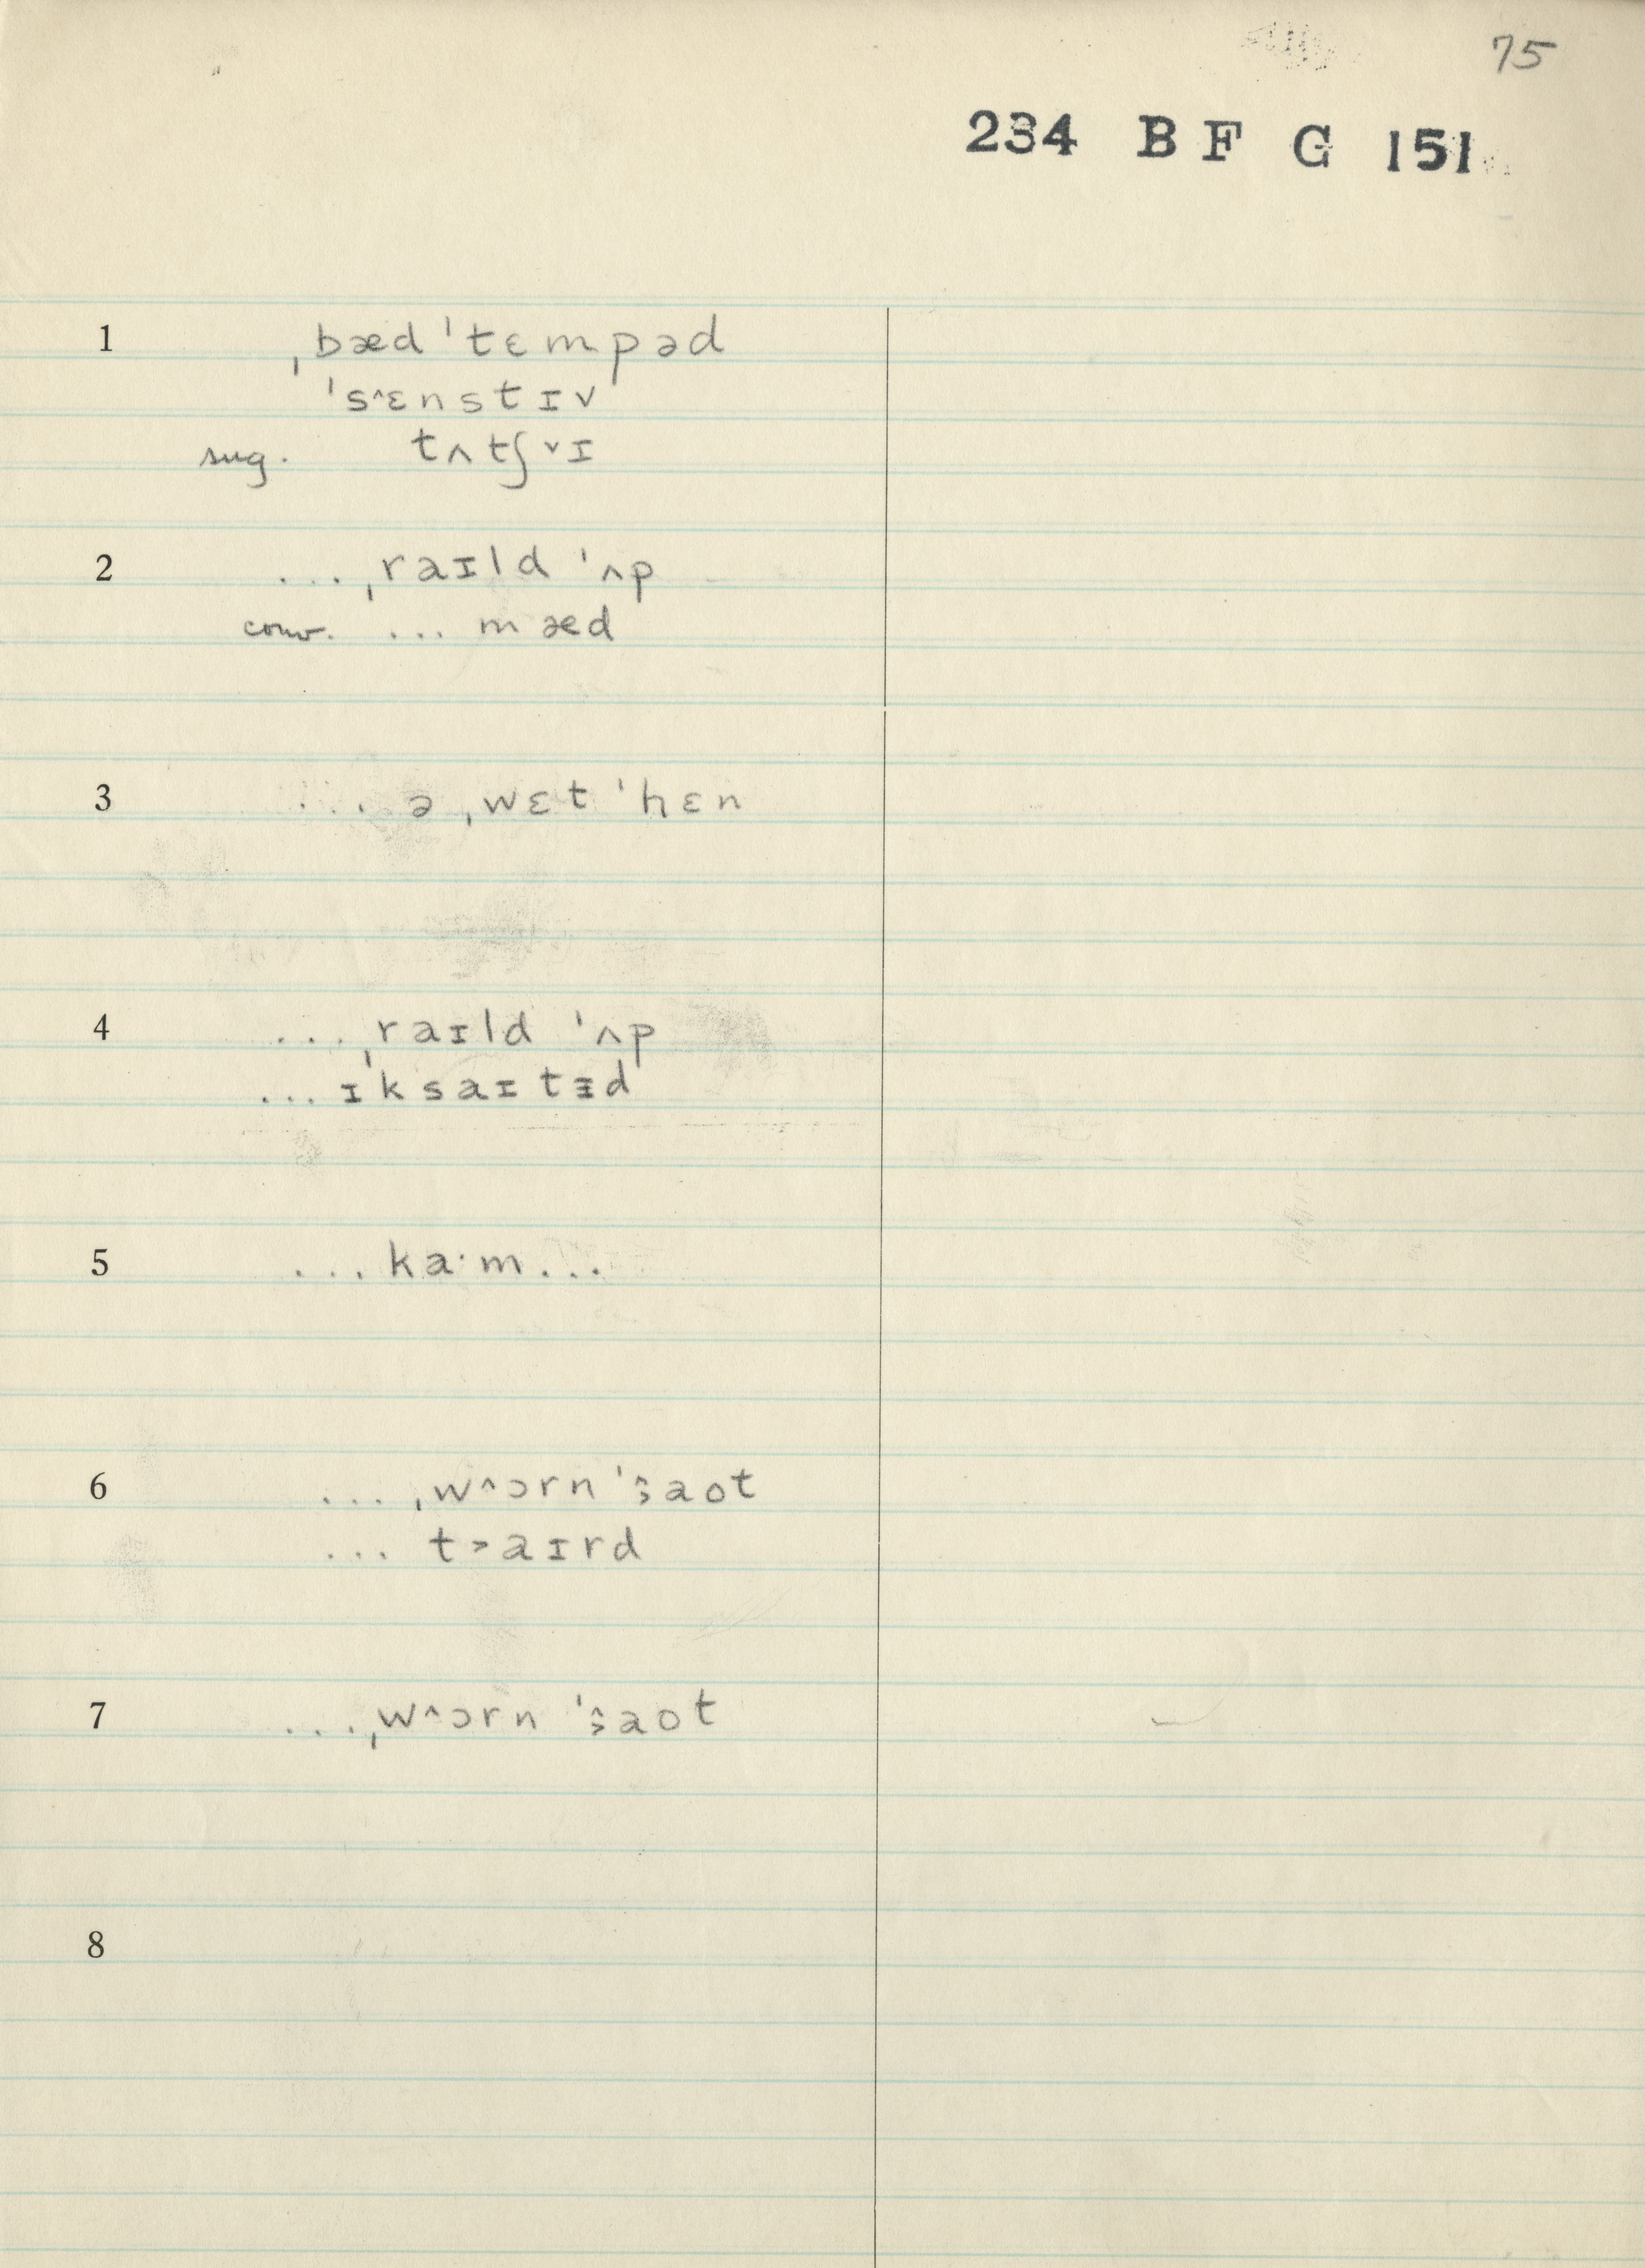 75
234 B F G 151
1 ˌbæd ˈtɛmpəd
ˈs^ɛnstɪv
sug. tʌtʃ˅ɪ
2 ... ˌraɪld ˈʌp
conv. ... mæd
3 ... ə ˌwɛt ˈhɛn
4 ... ˌraɪld ˈʌp
... ɪˈksaɪtɪd
5 ... ka·m ...
6 ... ˌw^ɔrn ˈaot
... t>aɪrd
7 ... ˌw^ɔrn ˈaot
8